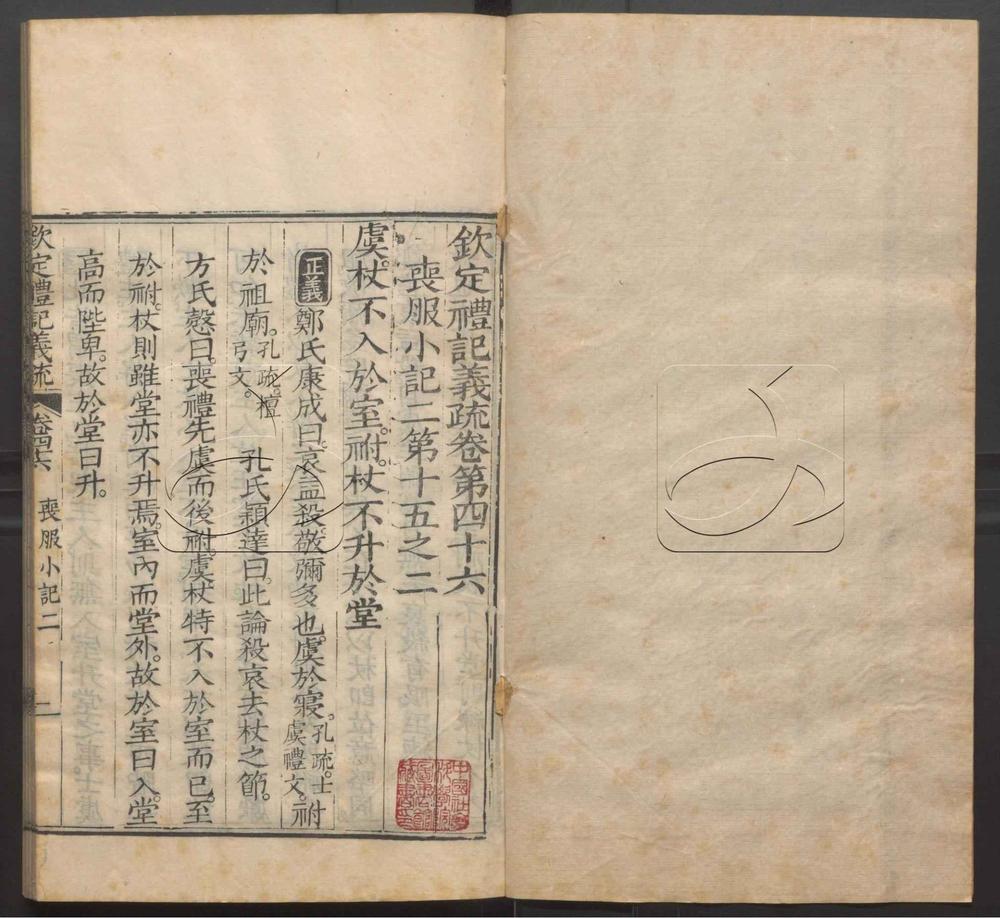 欽定禮記義疏卷第四十六
喪服小記二第十五之二
虞。杖不入於室。祔。杖不升於堂
正義 鄭氏康成曰。哀益殺。敬彌多也。虞於寢。孔疏。士虞禮文。祔
於祖廟。孔疏。檀弓文。 孔氏穎達曰。此論殺哀去杖之節。
方氏慤曰。喪禮先虞而後祔。虞杖特不入於室而已。至
於祔。杖則雖堂亦不升焉。室內而堂外。故於室曰入。堂
高而陛卑。故於堂曰升。
欽定禮記義疏 卷四十六 喪服小記二 一